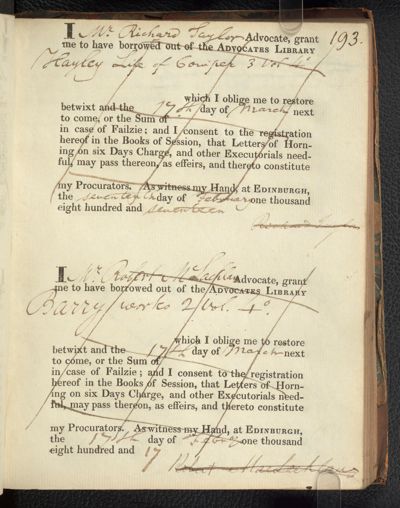 193.
I Mr Richard Taylor Advocate, grant
me to have borrowed out of the ADVOCATES LIBRARY
Hayley Life of Cowper 3 Vol. 4o
which I oblige me to restore
betwixt and the 17th day of March next
to come, or the Sum of
in case of Failzie; and I consent to the registration
hereof in the Books of Session, that Letters of Horn-
ing on six Days Charge, and other Executorials need-
ful, may pass thereon, as effeirs, and thereto constitute
my Procurators. As witness my Hand, at EDINBURGH,
the seventeenth day of February one thousand
eight hundred and seventeen
I Mr Robert Advocate, grant
me to have borrowed out of the ADVOCATES LIBRARY
Barry works 2 Vol. 4o.
which I oblige me to restore
betwixt and the 17th day of March next
to come, or the Sum of
in case of Failzie; and I consent to the registration
hereof in the Books of Session, that Letters of Horn-
ing on six Days Charge, and other Executorials need-
ful, may pass thereon, as effeirs, and thereto constitute
my Procurators. As witness my Hand, at EDINBURGH,
the 17th day of Febry one thousand
eight hundred and 17
Robert